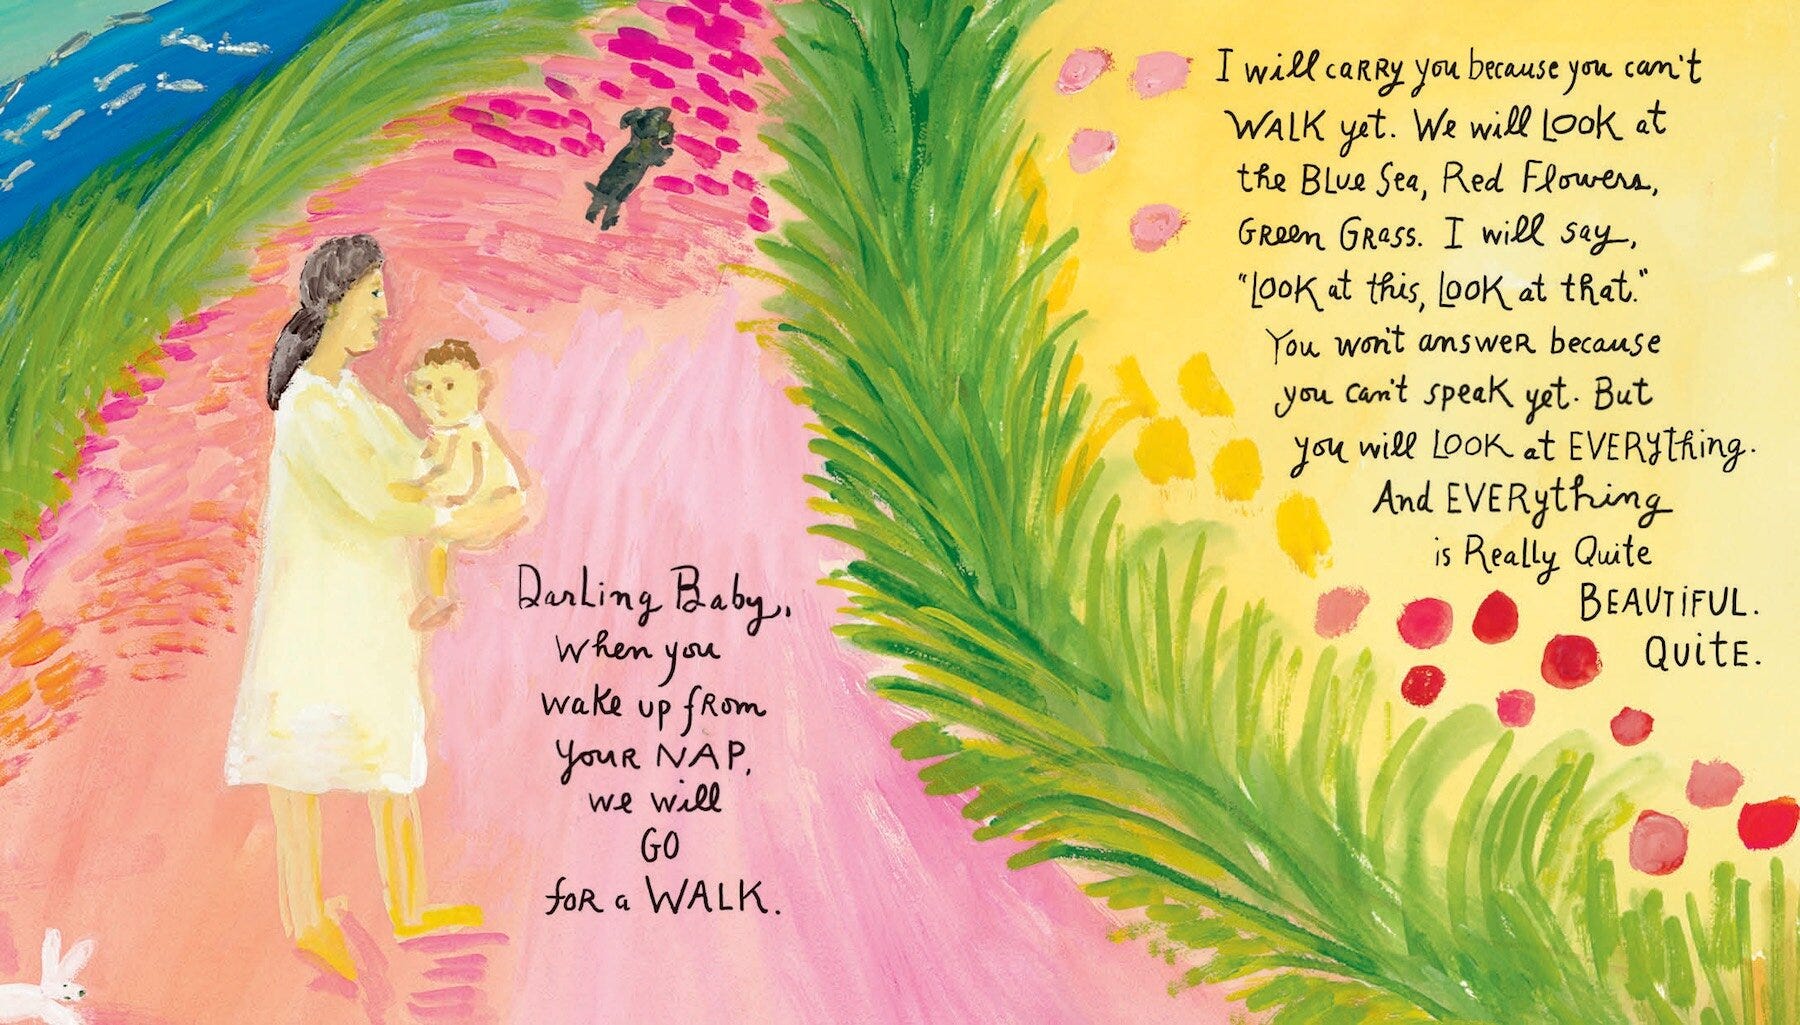 Darling Baby,
When you
wake up from
your NAP,
we will
GO
for a WALK.
I will carry you because you can't
WALK yet. We will LOOK at
the BLue Sea, Red Flowers,
Green Grass. I will say,
"LOOK at this, LOOK at that."
You won't answer because
you can't speak yet. But
you will LOOK at EVERYthing.
And EVERYthing
is Really Quite
BEAUTIFUL.
QUITE.